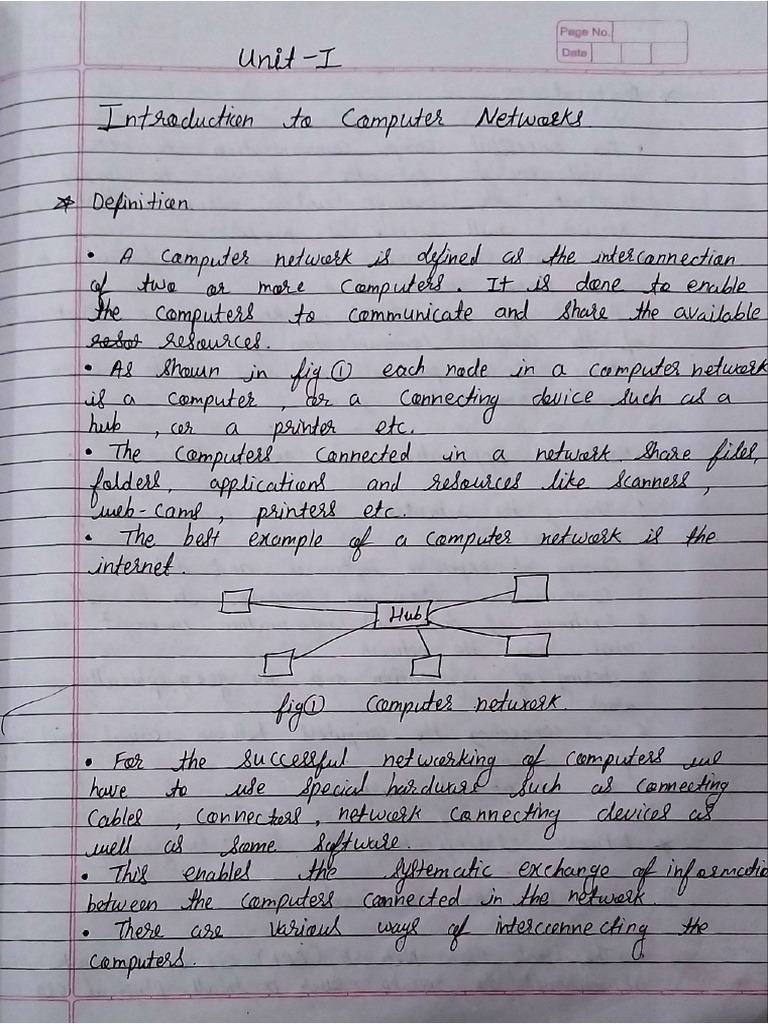 Page No.
Date
Unit - I
Introduction to Computer Networks
* Definition
• A computer network is defined as the interconnection
of two or more computers. It is done to enable
the computers to communicate and share the available
resources.
• As shown in fig ① each node in a computer network
is a computer, or a connecting device such as a
hub, or a printer etc.
• The computers connected in a network share files,
folders, applications and resources like scanners,
web-cams, printers etc.
• The best example of a computer network is the
internet.
Hub
fig ① Computer network.
• For the successful networking of computers we
have to use special hardware such as connecting
cables, connectors, network connecting devices as
well as some software.
• This enables the systematic exchange of informatio
between the computers connected in the network.
• There are various ways of interconnecting the
computers.